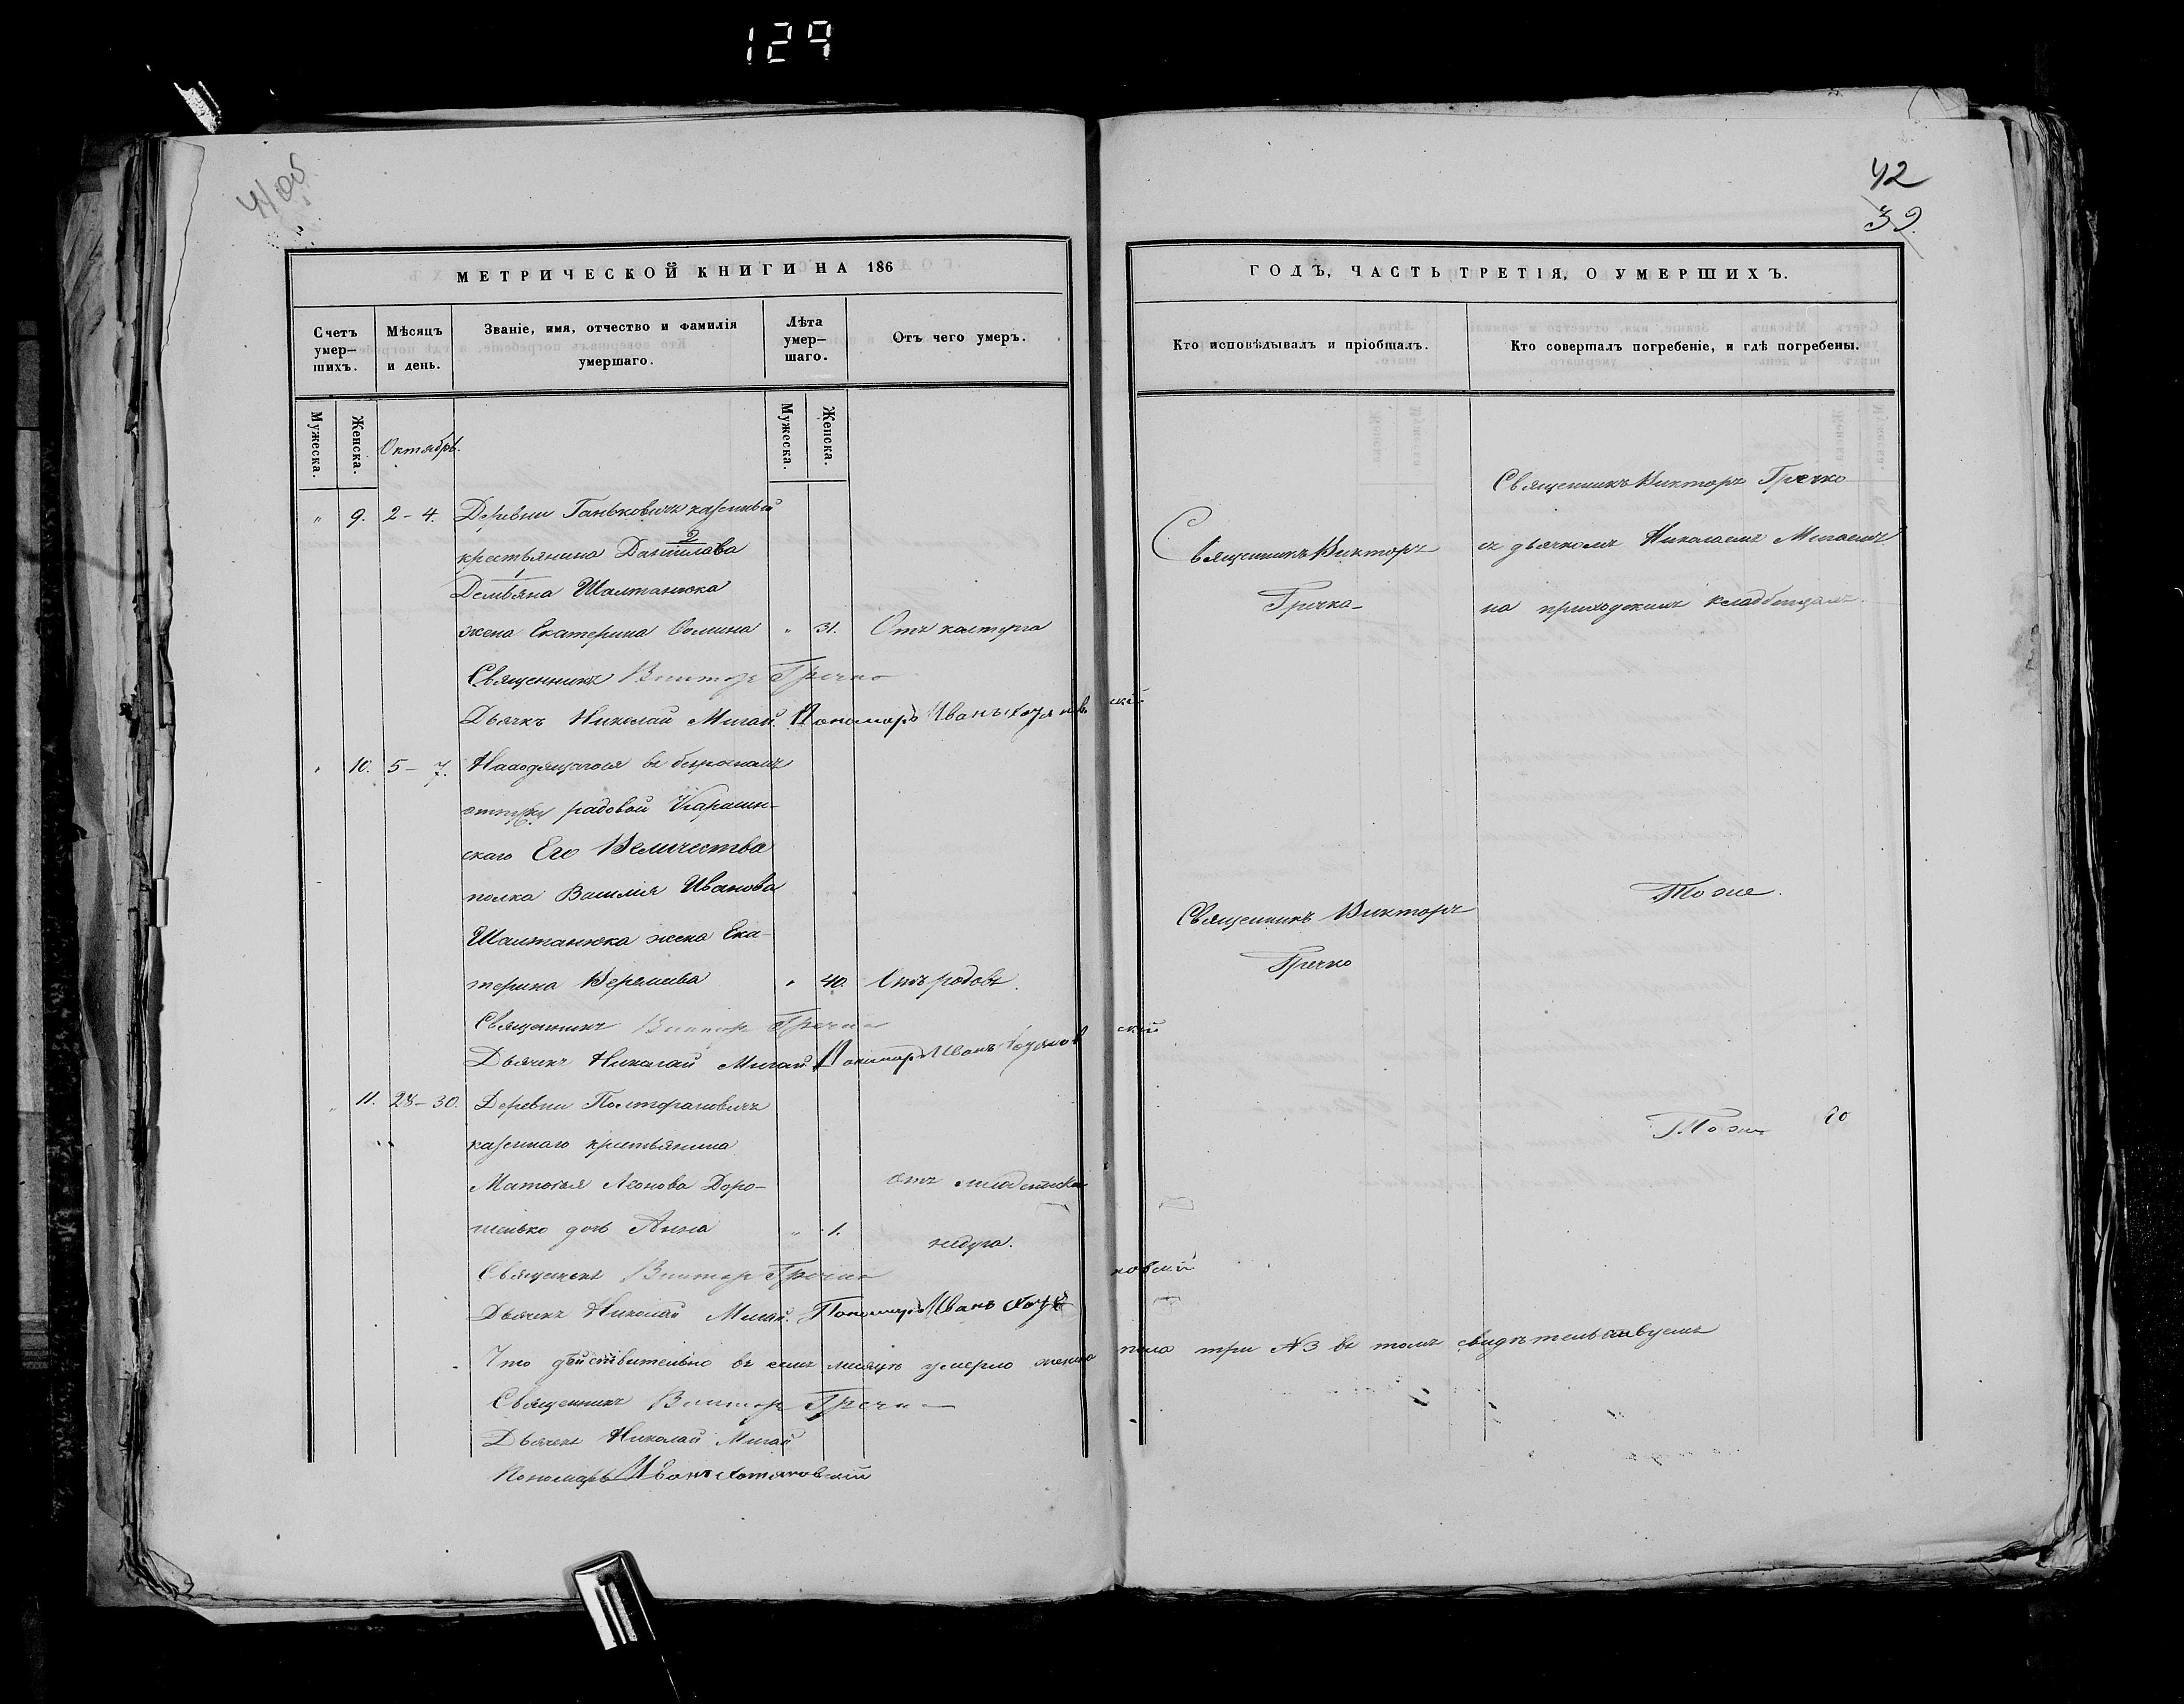 129
41 об
42
39.
МЕТРИЧЕСКОЙ КНИГИ НА 186
Счетъ умер-шихъ.
Мѣсяцъ и день.
Званіе, имя, отчество и фамилія умершаго.
Лѣта умер-шаго.
Отъ чего умеръ.
Мужеска.
Женска.
Мужеска.
Женска.
Октябрь.
" 9. 2-4. Деревни Ганьковичъ казенный
крестьянина Даниилова 2
1 Демьяна Шалтанюка
жена Екатерина Фомина " 31. Отъ
Священникъ Виктор Гречко
Дьячкъ Николай Мигай. Пономарь Иванъ
" 10. 5-7. Находящагося въ безсрочномъ
отпуску радовой
скаго Его Величества
полка Василія Иванова
Шалтанюка жена Ека-
терина " 40. Отъ родовъ.
Священникъ Виктор Гречко
Дьячекъ Николай Мигай Пономарь Иванъ
" 11. 28-30. Деревни Полторановичъ
казеннаго крестьянина
Матвѣя Леонова Доро-
шенко дочь Анна " 1. отъ младенческа
недуга.
Священникъ Виктор Гречко
Дьячекъ Николай Мигай. Пономарь Иванъ
Что дѣйствительно въ семъ мѣсяцѣ умерло женска пола три №3 въ томъ свидѣтельствуемъ
Священникъ Виктор Гречко
Дьячекъ Николай Мигай
Пономарь Иванъ Хотяновскій
ГОДЪ, ЧАСТЬ ТРЕТІЯ, О УМЕРШИХЪ.
Кто исповѣдывалъ и пріобщалъ.
Кто совершалъ погребеніе, и гдѣ погребены.
Священникъ Викторъ
Гречко
Священникъ Викторъ Гречко
съ дьячкомъ Николаемъ Мигаемъ
на приходскомъ кладбищѣ
Священникъ Викторъ
Гречко
Тоже.
Тоже